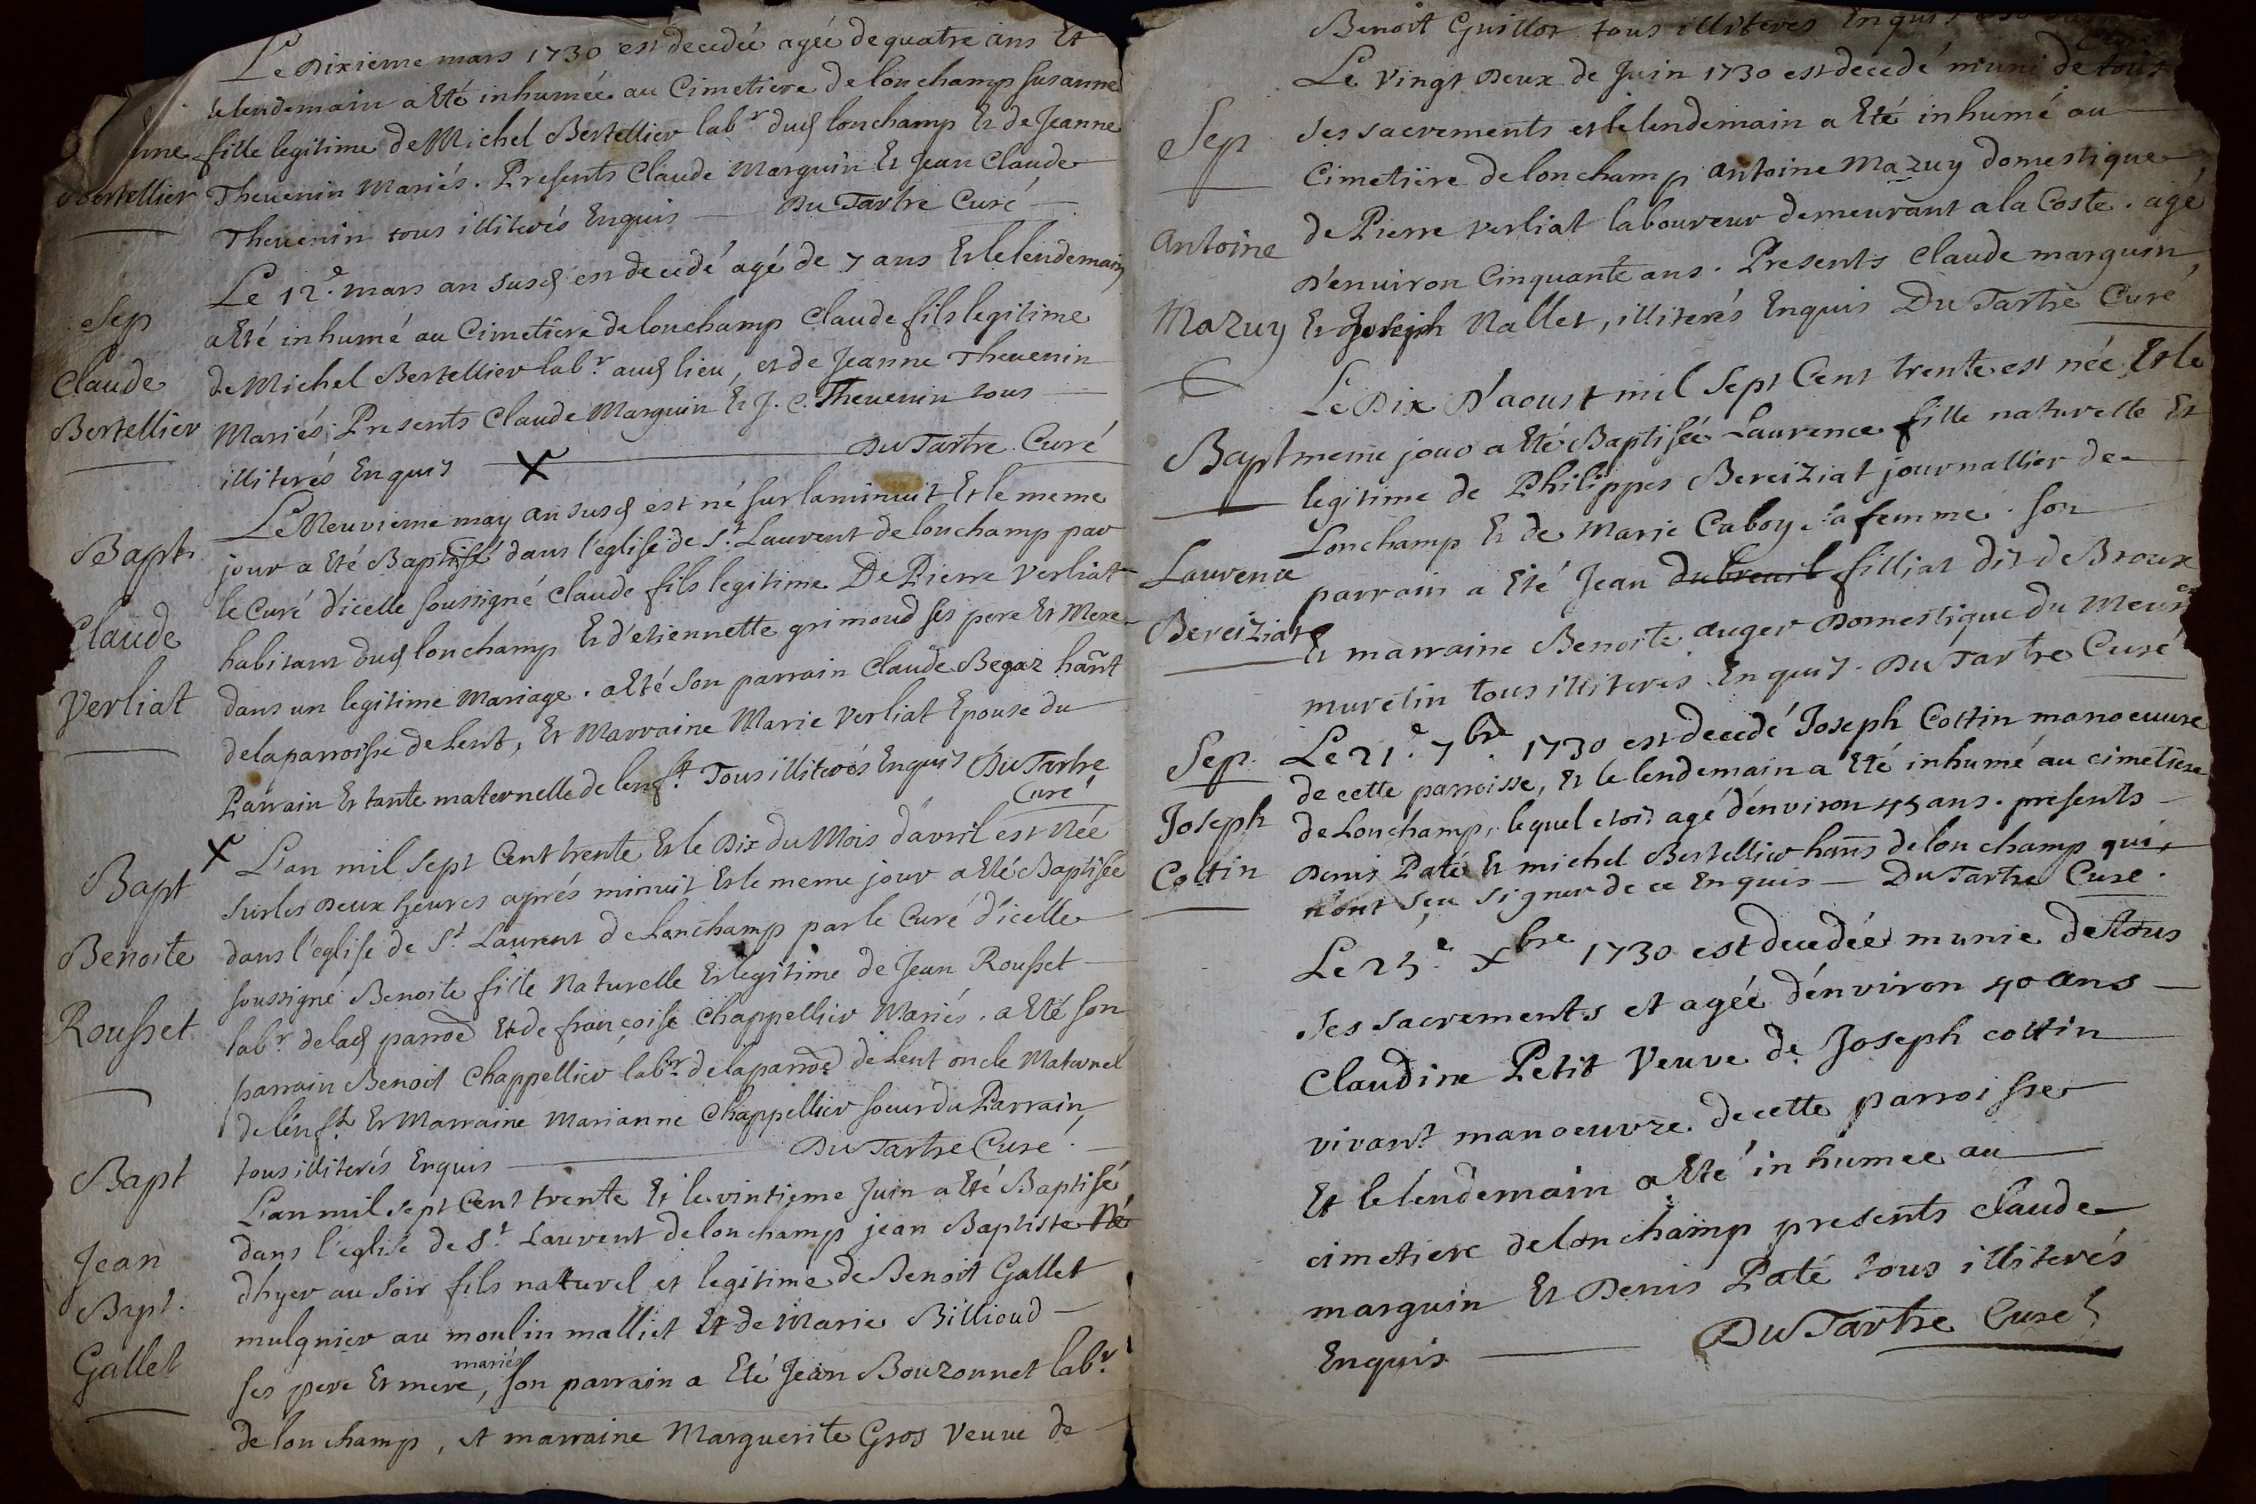 Le Dixième mars 1730 est decedée agée de quatre ans Et
le lendemain a Eté inhumée au Cimetiere de lonchamp Susanne
nne
fille legitime de Michel Bertellier labr dud lonchamp Et de Jeanne
Bertellier
Thevenin Mariés. Presents Claude Marguin Et Jean Claude
Thevenin tous illiterés Enquis — Du Tartre Curé
Le 12e. mars an susd est decedé agé de 7 ans Et le lendemain
Sep
a Eté inhumé au Cimetière de lonchamp Claude fils legitime
Claude
de Michel Bertellier labr. aud lieu, et de Jeanne Thevenin
Bertellier
Mariés, Presents Claude Marguin Et J. C. Thevenin tous
illiterés Enquis x Du Tartre Curé
Le Neuvieme may an susd est né sur la minuit Et le meme
Bapt
jour a Eté Baptisé dans l'eglise de St. Laurent de lonchamp par
le Curé d'icelle soussigné Claude fils legitime De Pierre Verliat
Claude
habitant dud lonchamp Et d'etiennette grimoud ses pere Et Mere
Verliat
dans un legitime Mariage. a Eté son parrain Claude Begaz hant
de la parroisse de Lent, Et Marraine Marie Verliat Epouse du
Parrain Et tante maternelle de lenft. Tous illiterés Enquis Du Tartre
Curé
x L'an mil sept Cent trente Et le Dix du Mois d'avril est Née
Bapt
sur les Deux heures aprés minuit Et le meme jour a Eté Baptisée
dans l'eglise de St Laurent de Lonchamp par le Curé d'icelle
Benoite
soussigné Benoite fille Naturelle Et legitime de Jean Rousset
Rousset
labr de lad parroe Et de françoise Chappellier Mariés. a Eté son
parrain Benoit Chappellier labr. de la parroe de Lent oncle Maternel
de lenft. Et Marraine Marianne Chappellier soeur du Parrain,
tous illiterés Enquis — Du Tartre Curé.
Bapt
L'an mil sept Cent trente Et le vintieme Juin a Eté Baptisé
dans l'eglise de St. Laurent de lonchamp jean Baptiste Né
Jean
d'hyer au soir fils naturel et legitime de Benoit Gallet
Bapt.
mulgnier au moulin malliet Et de Marie Billioud
Gallet
mariés
ses pere Et mere, son parrain a Eté Jean Bouzonnet labr.
de lonchamp, et marraine Marguerite Gros Veuve de
Benoit Guillot tous illiterés Enquis
Le Vingt Deux de Juin 1730 est decedé muni de tous
Sep
ses sacrements et le lendemain a Eté inhumé au
Cimetiëre de lonchamp Antoine Mazuy domestique
Antoine
de Pierre Verliat laboureur demeurant a la Coste. agé
D'environ Cinquante ans. Presents Claude marguin,
Mazuy
Et Joseph Nallet, illiterés Enquis Du Tartre Curé
Le Dix D'aoust mil Sept Cent trente est née Et le
Bapt
meme jour a Eté Baptisée Laurence fille naturelle Et
legitime de Philippes Bereiziat journallier de
Lonchamp Et de Marie Caboy sa femme. Son
Laurence
parrain a Eté Jean dubreuil filliat dit de Broux
Bereiziat
Et marraine Benoite auger Domestique du Meusr
murelin tous illiteres Enquis. Du Tartre Curé
Sep.
Le 21e. 7bre 1730 est decedé Joseph Cottin manoeuvre
de cette parroisse, Et le lendemain a Eté inhumé au cimetiere
Joseph
de Lonchamp, lequel etoit agé d'environ 45 ans. presents
Cottin
Denis Paté Et michel Bertellier hans de lonchamp qui
n'ont sçu signer de ce Enquis — Du Tartre Curé.
Le 25e. xbre 1730 est decedée munie de tous
ses sacrements et agée d'environ 40 ans
Claudine Petit Veuve de Joseph cottin
vivant manoeuvre de cette parroisse
Et le lendemain a Eté inhumée au
cimetiere de lonchamp presents claude
marguin Et Denis Paté tous illiterés
Enquis — Du Tartre Curé